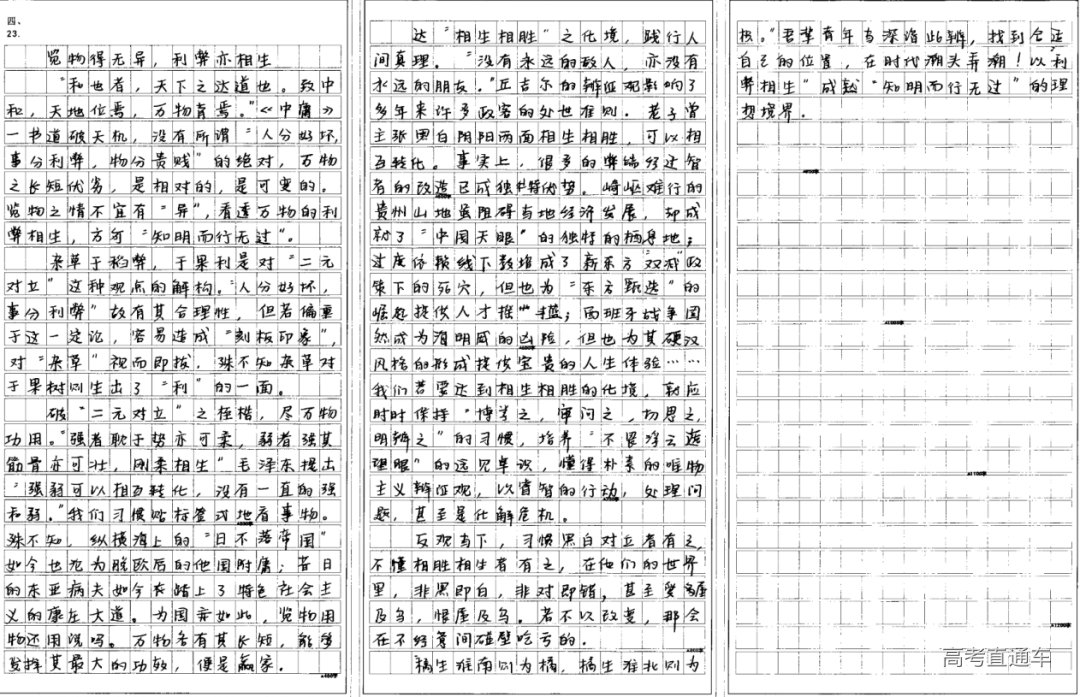 四、
23.
览物得无异，利弊亦相生
“和也者，天下之达道也。致中
和，天地位焉，万物育焉。”《中庸》
一书道破天机，没有所谓“人分好坏，
事分利弊，物分贵贱”的绝对，万物
之长短优劣，是相对的，是可变的。
览物之情不宜有“异”，看透万物的利
弊相生，方可“知明而行无过”。
杂草于稻弊，于果利是对“二元
对立”这种观点的解构。“人分好坏，
事分利弊”故有其合理性，但若偏重
于这一定论，容易造成“刻板印象”，
对“杂草”视而即拔，殊不知杂草对
于果树则生出了“利”的一面。
破“二元对立”之桎梏，尽万物
功用。“强者耽于势亦可柔，弱者强其
筋骨亦可壮，刚柔相生”毛泽东提出
“强弱可以相互转化，没有一直的强
和弱。”我们习惯贴标签式地看事物。
殊不知，纵横海上的“日不落帝国”
如今也沦为脱欧后的他国附庸；昔日
的东亚病夫如今踏上了特色社会主
义的康庄大道。为国亦如此，览物用
物还用说吗。万物各有其长短，能够
发挥其最大的功效，便是赢家。
x400字
达“相生相胜”之化境，践行人
间真理。“没有永远的敌人，亦没有
永远的朋友。”丘吉尔的辩证观影响了
多年来许多政客的处世准则。老子曾
主张黑白阴阳两面相生相胜，可以相
互转化。事实上，很多的弊端经过智
者的改造已成独特优势。崎岖难行的
贵州山地虽阻碍当地经济发展，却成
就了“中国天眼”的独特的栖身地；
过度依赖线下教培成了新东方“双减”政
策下的死穴，但也为“东方甄选”的
崛起提供人才摇篮；西班牙战争固
然成为海明威的凶险，但也为其硬汉
风格的形成提供宝贵的人生体验……
我们若要达到相生相胜的化境，就应
时时保持“博学之，审问之，切思之，
明辨之”的习惯，培养“不畏浮云遮
望眼”的远见卓识，懂得朴素的唯物
主义辩证观，以睿智的行动，处理问
题，甚至是化解危机。
反观当下，习惯黑白对立者有之，
不懂相胜相生者有之，在他们的世界
里，非黑即白，非对即错，甚至爱屋
及乌，恨屋及乌。若不以改变，那会
在不经意间碰壁吃亏的。
橘生淮南则为橘，橘生淮北则为
枳。”吾辈青年当深谙此辩，找到合适
自己的位置，在时代潮头弄潮！以“利
弊相生”成就“知明而行无过”的理
想境界。
▲1100字
▲1200字
高考直通车